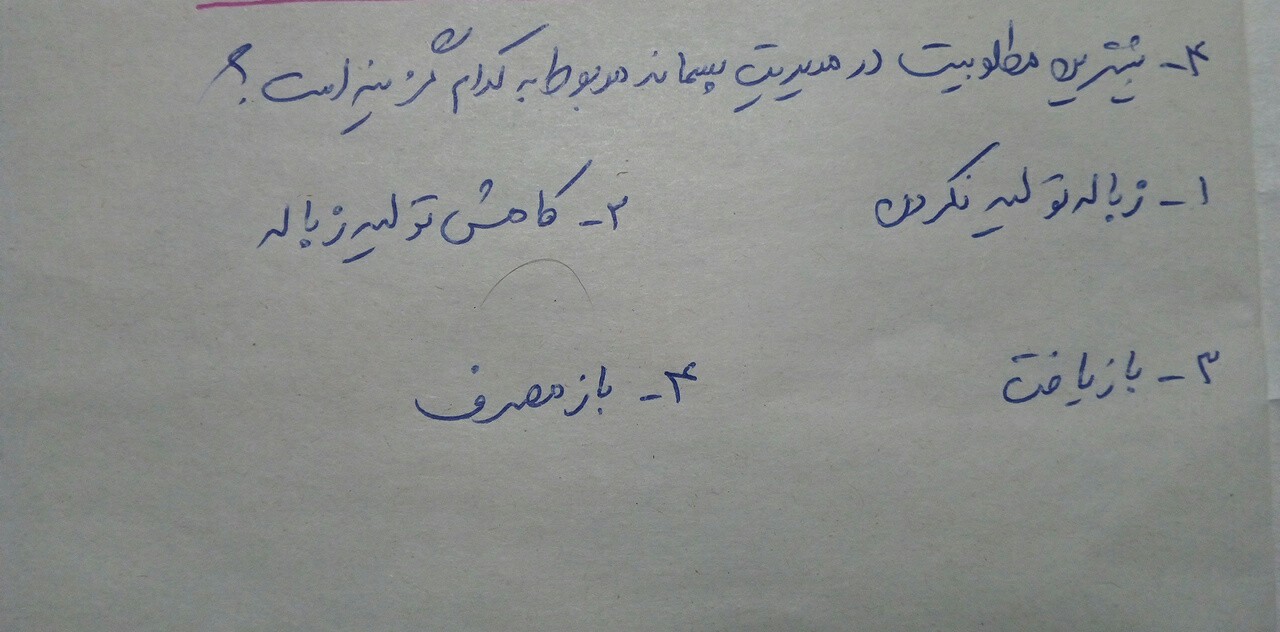 ۴- بیشترین مطلوبیت در مدیریت پسماند مربوط به کدام گزینه است؟
۱- زباله تولید نکردن
۲- کاهش تولید زباله
۳- بازیافت
۴- باز مصرف